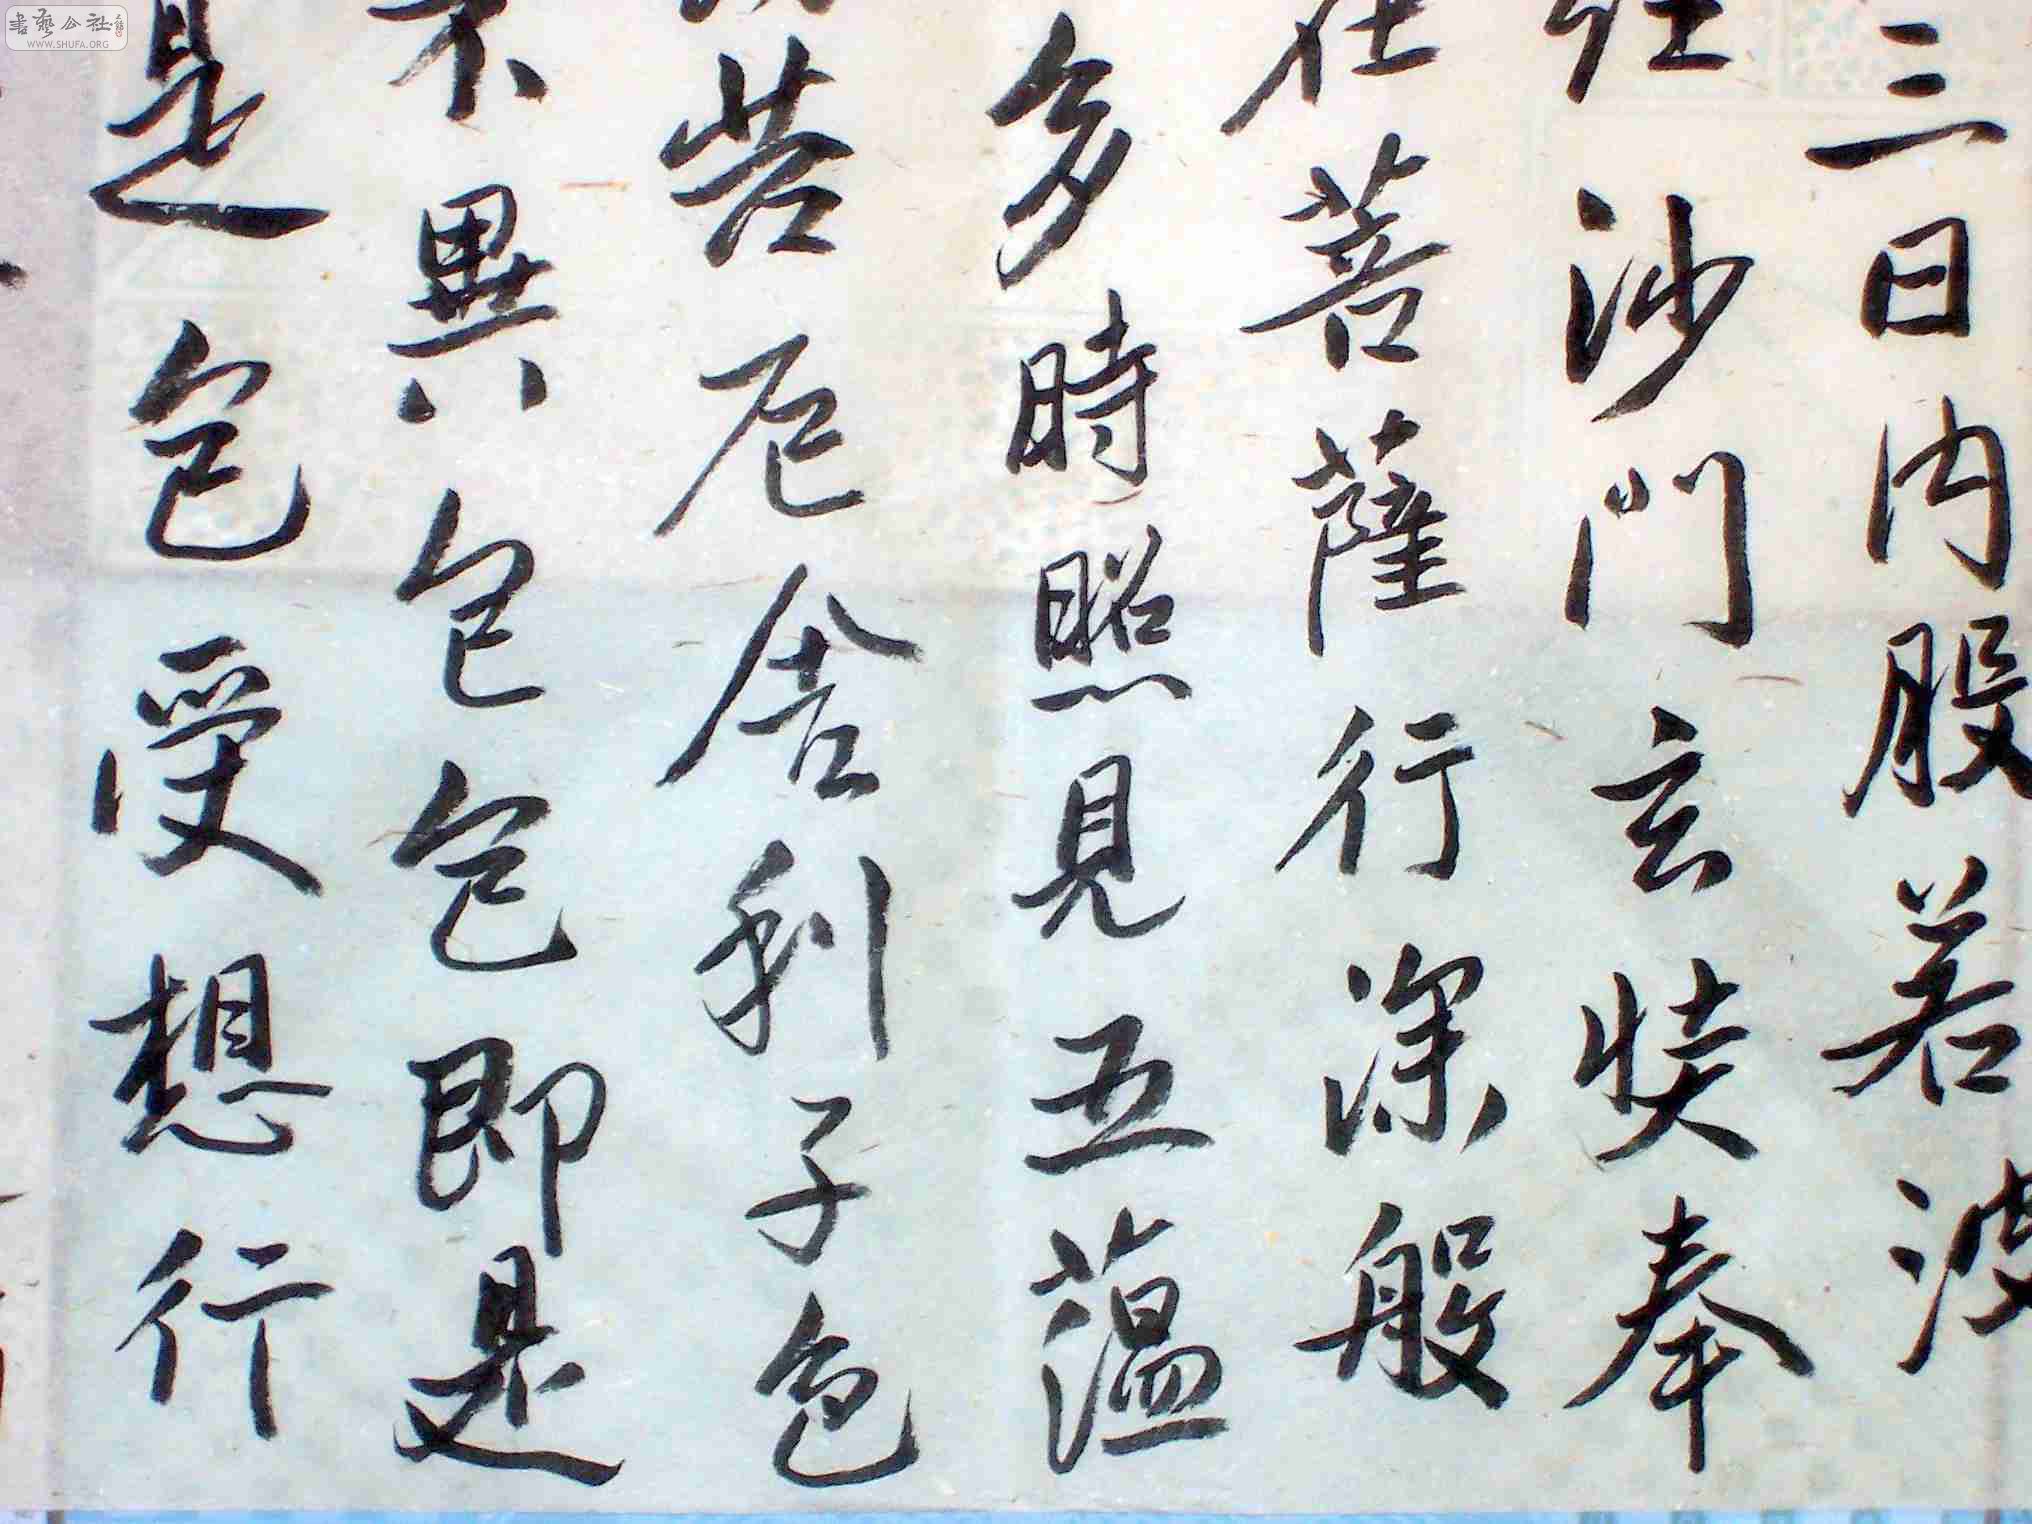 三日内股若波
沙門玄奘奉
在菩薩行深般
多時照見五蘊
苦厄舍利子色
不異色色色即是
是色受想行
書藝公社
WWW.SHUFA.ORG